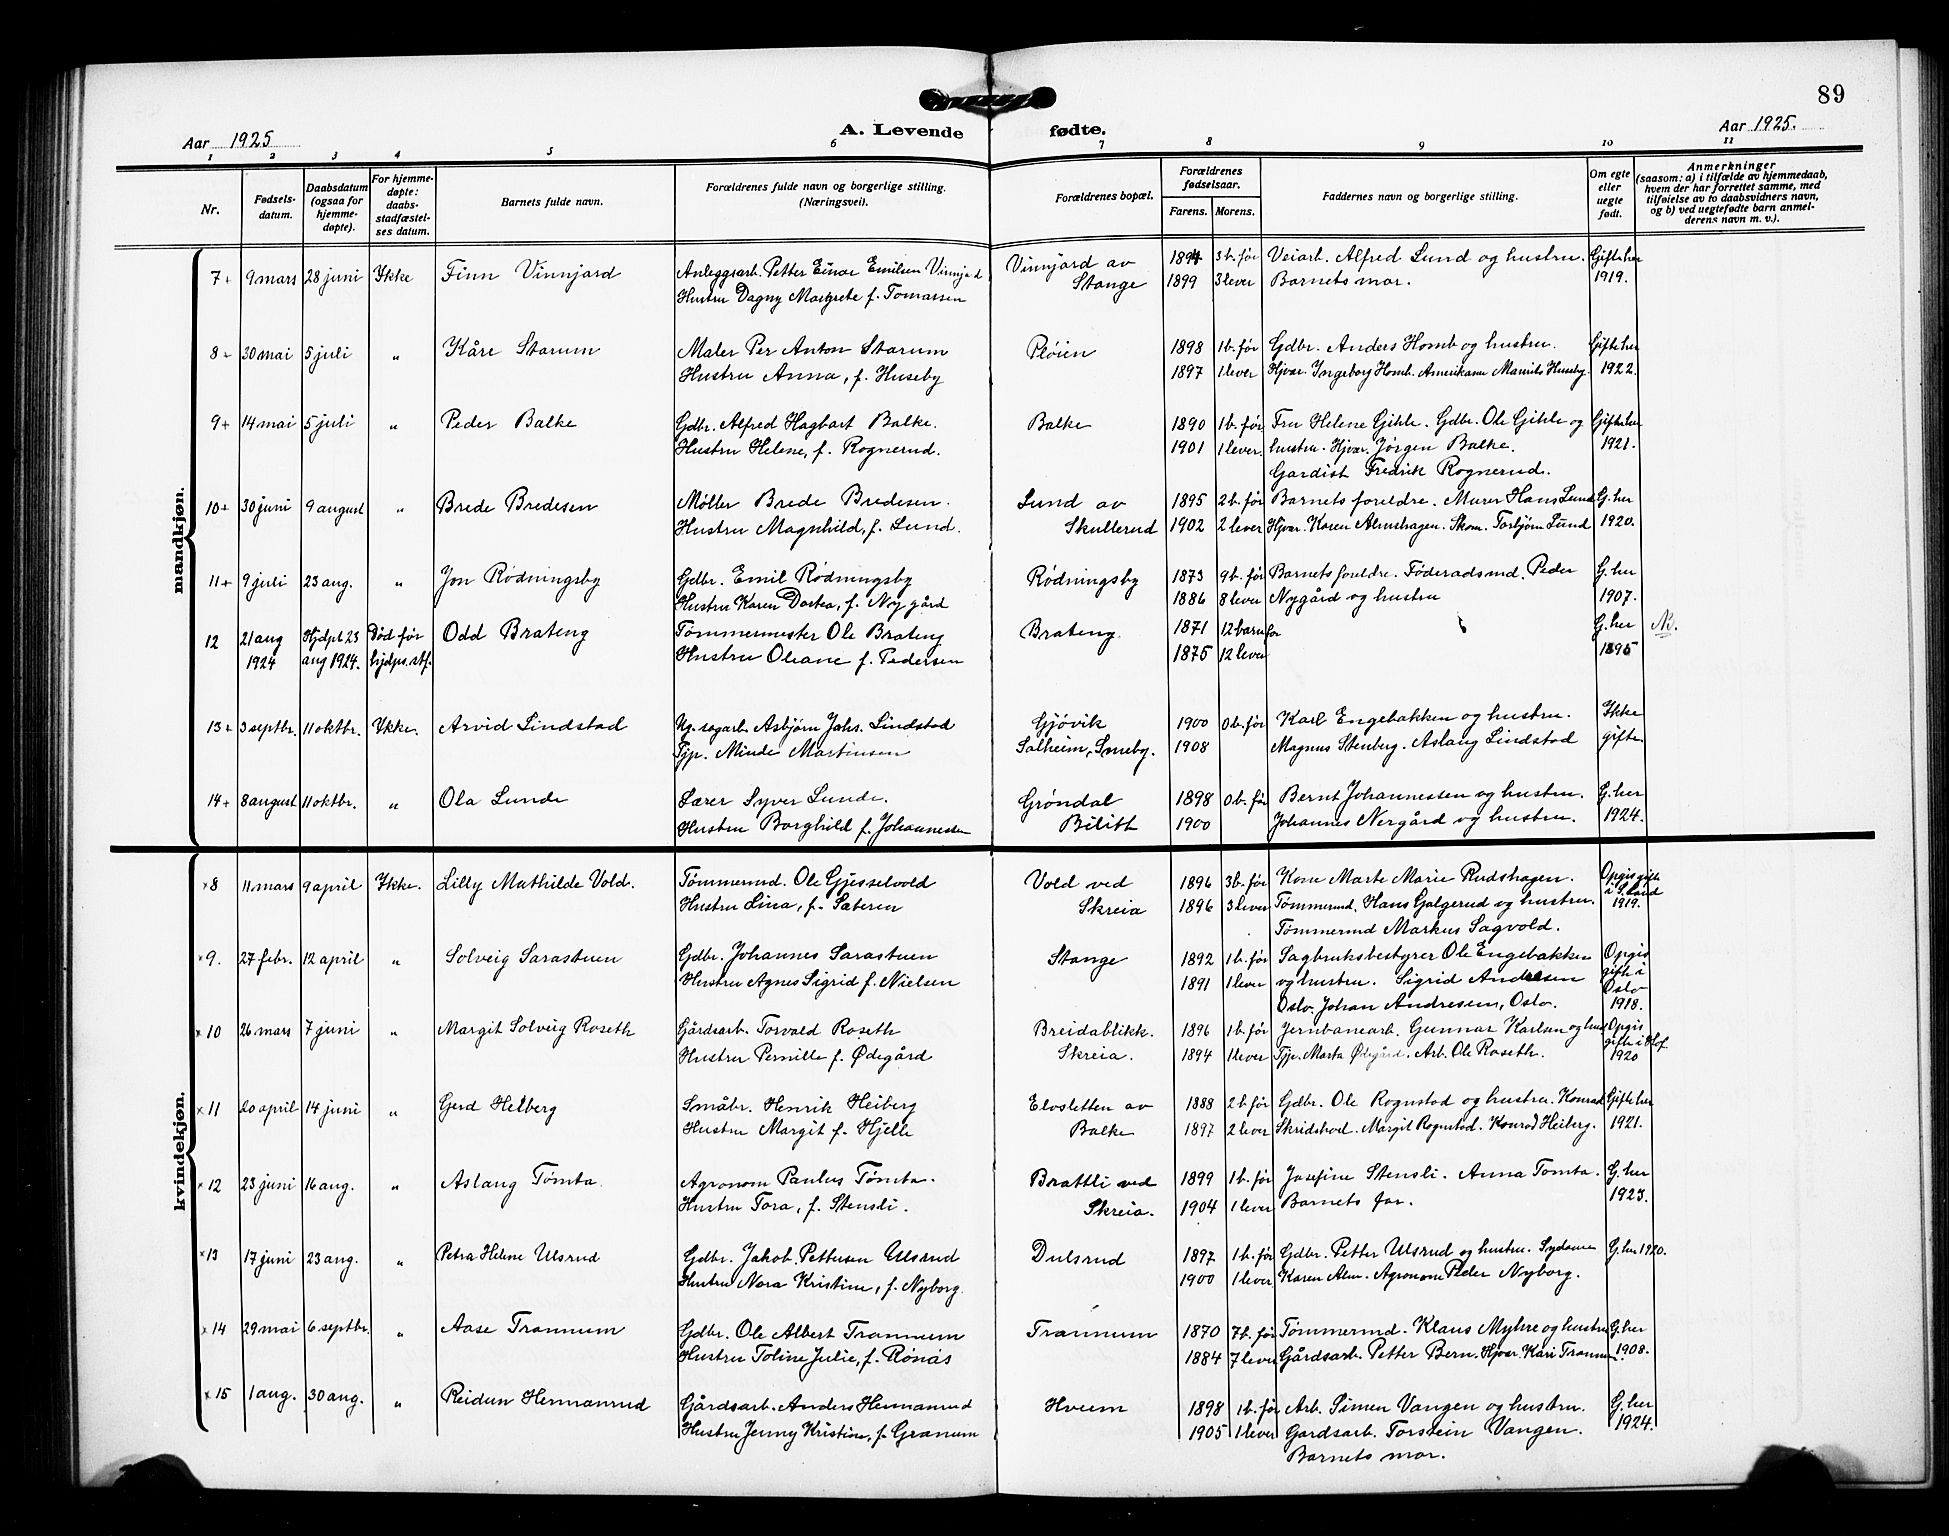 89
A. Levende fødte.
Aar 1925
Aar 1925.
1 2 3 4 5 6 7 8 9 10 11
Nr.
Fødsels-
datum.
Daabsdatum
(ogsaa for
hjemme-
døpte).
For hjemme-
døpte:
daabs-
stadfæstel-
ses datum.
Barnets fulde navn.
Forældrenes fulde navn og borgerlige stilling.
(Næringsvei).
Forældrenes bopæl.
Forældrenes
fødselsaar.
Farens. Morens.
Faddernes navn og borgerlige stilling.
Om egte
eller
uegte
født.
Anmerkninger
(saasom: a) i tilfælde av hjemmedaab,
hvem der har forrettet samme, med
tilføielse av to daabsvidners navn,
og b) ved uegtefødte barn anmel-
derens navn m. v.).
mandkjøn.
7+ 9 mars 28 juni Ikke Finn Vinnjard Anleggsarb. Petter Einar Emilsen Vinnjard Vinnjard av 1894 3 b. før Veiarb. Alfred Lund og hustru. Gifte her
Hustru Dagny Margrete f. Tomassen Stange 1899 3 lever Barnets mor. 1919.
8 30 mai 5 juli " Kåre Starum Maler Per Anton Starum Pløien 1898 1 b. før Gdbr. Anders Homb og hustru. Gifte her
Hustru Anna, f. Huseby 1897 1 lever Hjvær. Ingeborg Homb. Amerikaner Maurits Huseby. 1922.
9+ 14 mai 5 juli " Peder Balke Gdbr. Alfred Hagbart Balke. Balke 1890 1 b. før Fru Helene Gihle. Gdbr. Ole Gihle og Gifte her
Hustru Helene, f. Rognerud. 1901 1 lever. hustru. Hjvær. Jørgen Balke. 1921.
Gardist Fredrik Rognerud.
10+ 30 juni 9 august " Brede Bredesen Møller Brede Bredesen. Lund av 1895 2 b. før Barnets foreldre. Murer Hans Lund G. her
Hustru Magnhild, f. Lund. Skullerud 1902 2 lever Hjvær. Karen Almshagen. Skom. Torbjørn Lund 1920.
11+ 9 juli 23 aug. " Jon Rødningsby Gdbr. Emil Rødningsby Rødningsby 1873 9 b. før Barnets foreldre. Føderadsmd. Peder G. her
Hustru Karen Dortea, f. Nygård 1886 8 lever Nygård og hustru 1907.
12 21 aug Hjdpt 23 Død før Odd Brateng Tømmermester Ole Brateng Brateng. 1871 12 barn før G. her
1924 aug 1924. hjdps. stf. Hustru Oleane f. Pedersen 1875 12 lever 1895
13+ 3 septbr. 11 oktbr. Ikke. Arvid Lindstad Ug. sagarb. Asbjørn Johs. Lindstad Gjøvik 1900 0 b. før Karl Engebakken og hustru. Ikke
Tjp. Minda Martinsen Solheim, Smeby. 1908 Magnus Stenberg. Aslaug Lindstad gifte.
14+ 8 august 11 oktbr. " Ola Lunde Lærer Syver Lunde. Grøndal 1898 0 b. før Bernt Johannessen og hustru. G. her
Hustru Borghild f. Johannessen Bilitt 1900 Johannes Nergård og hustru. 1924.
kvindekjøn.
×8 11 mars 9 april Ikke. Lilly Mathilde Vold. Tømmermd. Ole Gjesselvold Vold ved 1896 3 b. før Kone Marte Marie Rudshagen. Opgis gifte
Hustru Lina, f. Sæteren Skreia 1896 3 lever Tømmermd. Hans Galgerud og hustru. i S. Land
Tømmermd Markus Sagvold. 1919.
×9. 27 febr. 12 april " Solveig Sarastuen Gdbr. Johannes Sarastuen Stange 1892 1 b. før Sagbruksbestyrer Ole Engebakken Opgis
Hustru Agnes Sigrid f. Nielsen 1891 1 lever og hustru. Sigrid Andresen gifte i
Oslo. Johan Andresen, Oslo. Oslo 1918.
×10 26 mars 7 juni " Margit Solveig Roseth Gårdsarb. Torvald Roseth Breidablikk. 1896 1 b. før Jernbanearb. Gunnar Karlsen og hust Opgis
Hustru Pernille f. Ødegård Skreia. 1894 1 lever Tjp. Marta Ødegård. Arb. Ole Roseth. gifte i Hof 1920
×11 20 april 14 juni " Gerd Heiberg Småbr. Henrik Heiberg Elvsletten av 1888 2 b. før Gdbr. Ole Rognstad og hustru. Konrad Gifte her
Hustru Margit f. Hjelle Balke 1897 2 lever Skridshoel. Margit Rognstad. Konrad Heiberg. 1921.
×12 23 juni 16 aug. " Aslaug Tømta. Agronom Paulus Tømta. Brattli ved 1899 1 b. før Josefine Stensli. Anna Tomta. G. her
Hustru Tora, f. Stensli. Skreia. 1904 1 lever Barnets far. 1923.
×13 17 juni 23 aug. " Petra Helene Ulsrud Gdbr. Jakob Pettersen Ulsrud Dulsrud 1897 1 b. før Gdbr. Petter Ulsrud og hustru. Sydame G. her 1920.
Hustru Nora Kristine, f. Nyborg. 1900 1 lever Karen Alm. Agronom Peder Nyborg.
×14 29 mai 6 septbr. " Aase Trannum Gdbr. Ole Albert Trannum Trannum 1870 7 b. før Tømmermd. Klaus Myhre og hustru G. her
Hustru Toline Julie, f. Rønås 1884 7 lever Gårdsarb. Petter Bern. Hjvær. Kari Trannum. 1908.
×15 1 aug. 30 aug. " Reidun Hermanrud Gårdsarb. Anders Hermanrud Hveem 1898 1 b. før Arb. Simen Vangen og hustru. G. her
Hustru Jenny Kristine, f. Granum 1905 1 lever Gardsarb. Torstein Vangen. 1924.
Barnets mor.